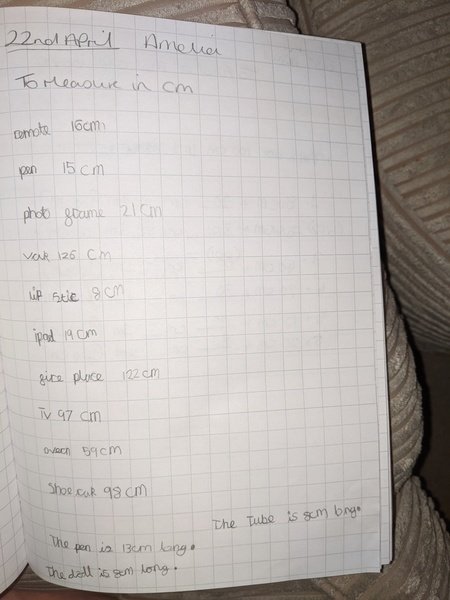 22nd April Amelia
To Measure in cm
remote 16cm
pen 15cm
photo frame 21cm
126 cm
lip stic 8cm
ipad 19cm
fire place 122cm
TV 97 cm
oven 59cm
98 cm
The Tube is 8cm long.
The pen is 13cm long.
The doll is 8cm long.